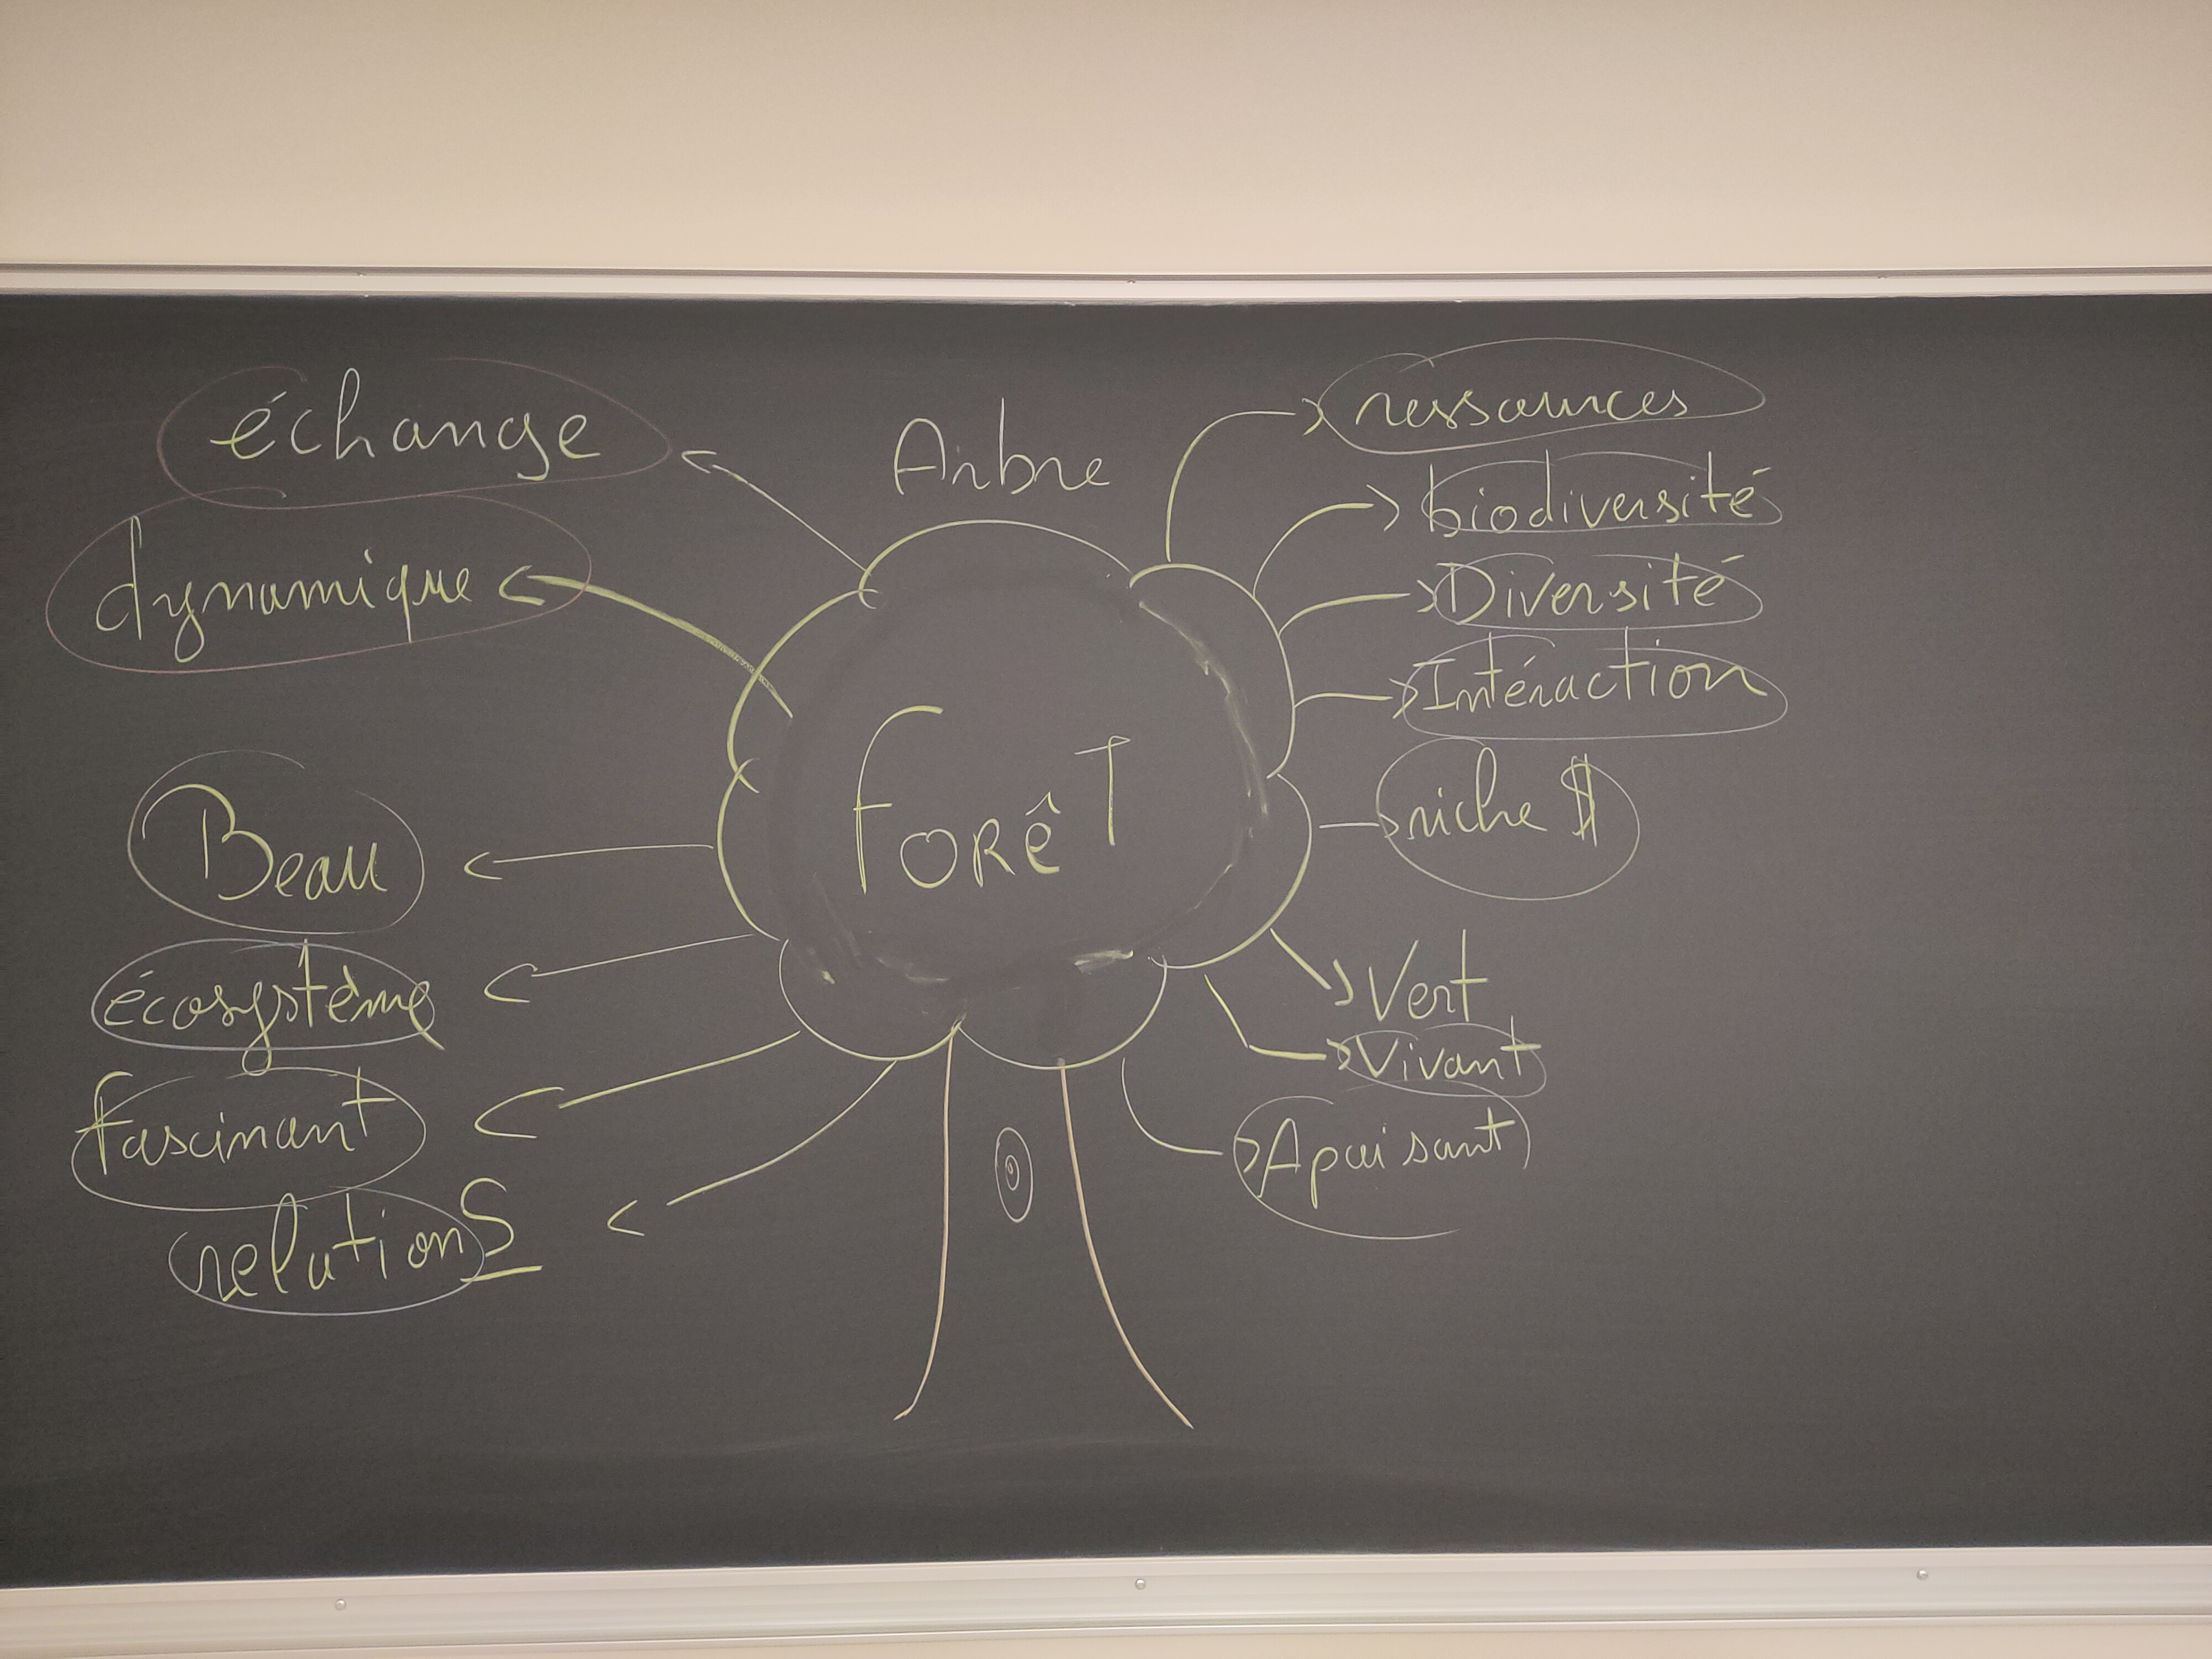 échange
dynamique
Beau
écosystème
fascinant
relationS
Arbre
Forêt
ressources
biodiversité
Diversité
Intéraction
riche $
Vert
Vivant
Apaisant